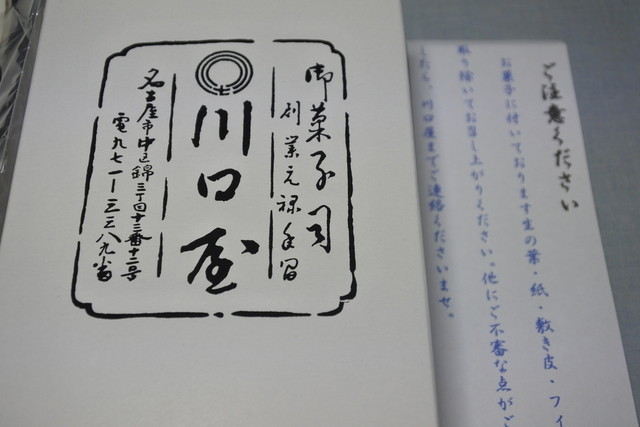 御菓子司
創業元禄年間
川口屋
名古屋市中区錦三丁目十三番十二号
電九七一ー三三八九番
ご注意ください
お菓子に付いております生の葉・紙・敷き皮・フィ
取り除いてお召し上がりください。他にご不審な点がご
したら、川口屋までご連絡くださいませ。